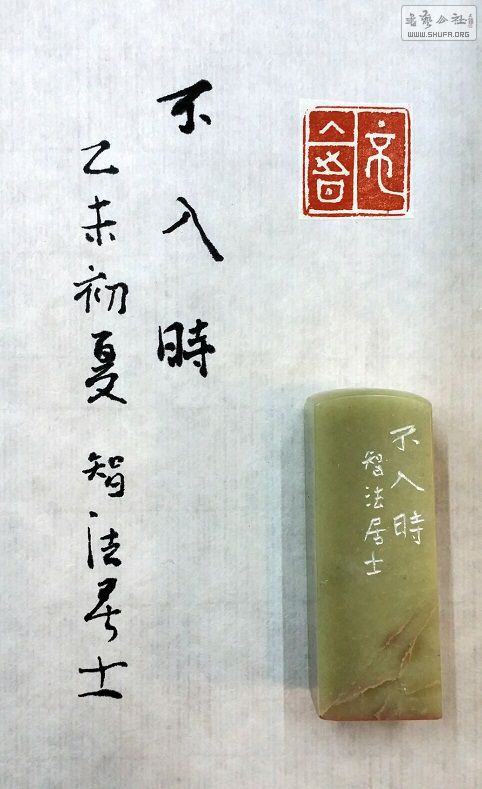 不入時
乙未初夏 智法居士
不入時
不入時
智法居士
书艺公社
WWW.SHUFA.ORG